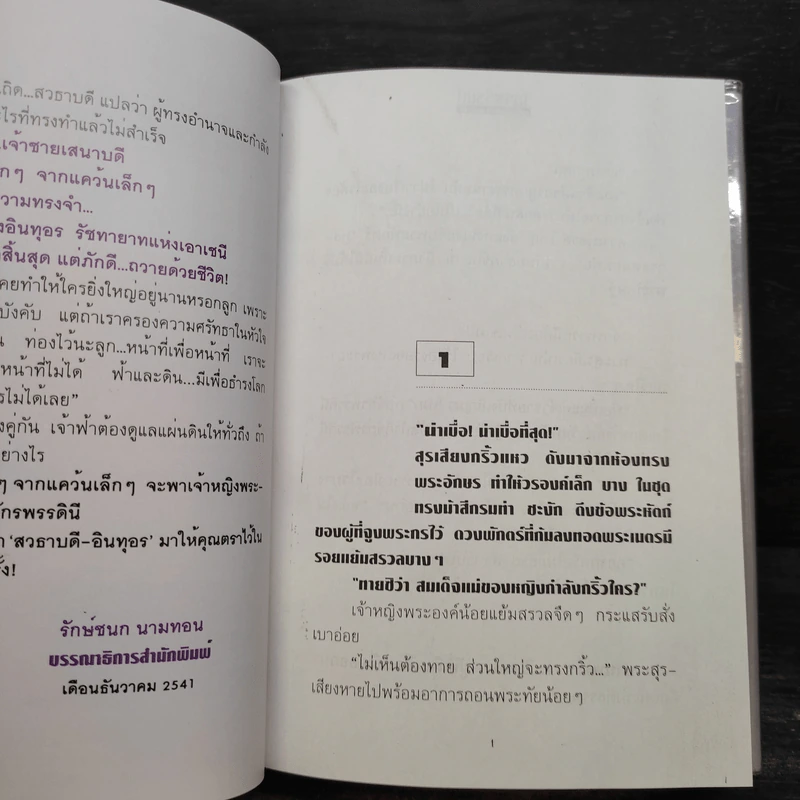 เถิด...สวธาบดี แปลว่า ผู้ทรงอำนาจและกำลัง
ไรที่ทรงทำแล้วไม่สำเร็จ
เจ้าชายเสนาบดี
กๆ จากแคว้นเล็กๆ
วามทรงจำ...
งอินทุอร รัชทายาทแห่งเอาเซนี
สิ้นสุด แต่ภักดี...ถวายด้วยชีวิต!
คยทำให้ใครยิ่งใหญ่อยู่นานหรอกลูก เพราะ
บังคับ แต่ถ้าเราครองความศรัทธาในหัวใจ
น ท่องไว้นะลูก...หน้าที่เพื่อหน้าที่ เราจะ
หน้าที่ไม่ได้ ฟ้าและดิน...มีเพื่อธำรงโลก
รไม่ได้เลย”
งคู่กัน เจ้าฟ้าต้องดูแลแผ่นดินให้ทั่วถึง ถ้า
อย่างไร
ๆ จากแคว้นเล็กๆ จะพาเจ้าหญิงพระ-
ักรพรรดินี
า ‘สวธาบดี-อินทุอร’ มาให้คุณตราไว้ใน
รั้ง!
รักษ์ชนก นามทอน
บรรณาธิการสำนักพิมพ์
เดือนธันวาคม 2541
1
"น่าเบื่อ! น่าเบื่อที่สุด!"
สุรเสียงกริ้วแหว ดังมาจากห้องทรง
พระอักษร ทำให้วรองค์เล็ก บาง ในชุด
ทรงม้าสีกรมท่า ชะงัก ดึงข้อพระหัตถ์
ของผู้ที่จูงพระกรไว้ ดวงพักตร์ที่ก้มลงทอดพระเนตรมี
รอยแย้มสรวลบางๆ
"ทายซิว่า สมเด็จแม่ของหญิงกำลังกริ้วใคร?"
เจ้าหญิงพระองค์น้อยแย้มสรวลจืดๆ กระแสรับสั่ง
เบาอ่อย
“ไม่เห็นต้องทาย ส่วนใหญ่จะทรงกริ้ว...” พระสุร-
เสียงหายไปพร้อมอาการถอนพระทัยน้อยๆ
1